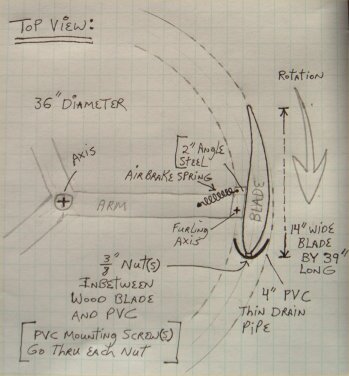 TOP VIEW:
36" DIAMETER
ROTATION
AXIS
2" ANGLE
STEEL
AIRBRAKE SPRING
ARM
BLADE
FURLING
AXIS
14" WIDE
BLADE
BY 39"
LONG
3/8" NUT(S)
INBETWEEN
WOOD BLADE
AND PVC
4" PVC
THIN DRAIN
PIPE
[PVC MOUNTING SCREW(S)
GO THRU EACH NUT]